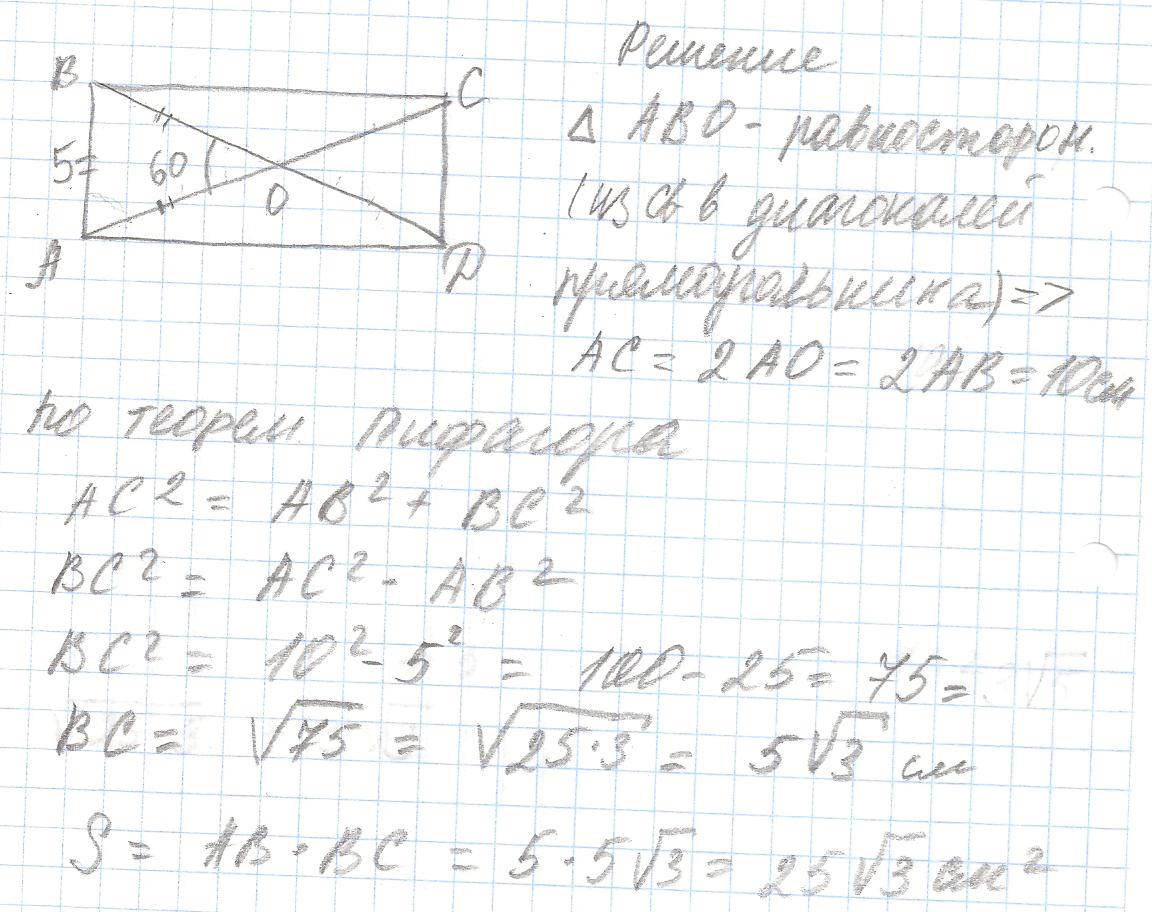 B
C
5
60
O
A
D
Решение
Δ ABO - равносторон.
(из св-в диагоналей
прямоугольника) =>
AC = 2AO = 2AB = 10см
по теорем. Пифагора
AC² = AB² + BC²
BC² = AC² - AB²
BC² = 10² - 5² = 100 - 25 = 75 =
BC = √75 = √25·3 = 5√3 см
S = AB · BC = 5 · 5√3 = 25√3 см²